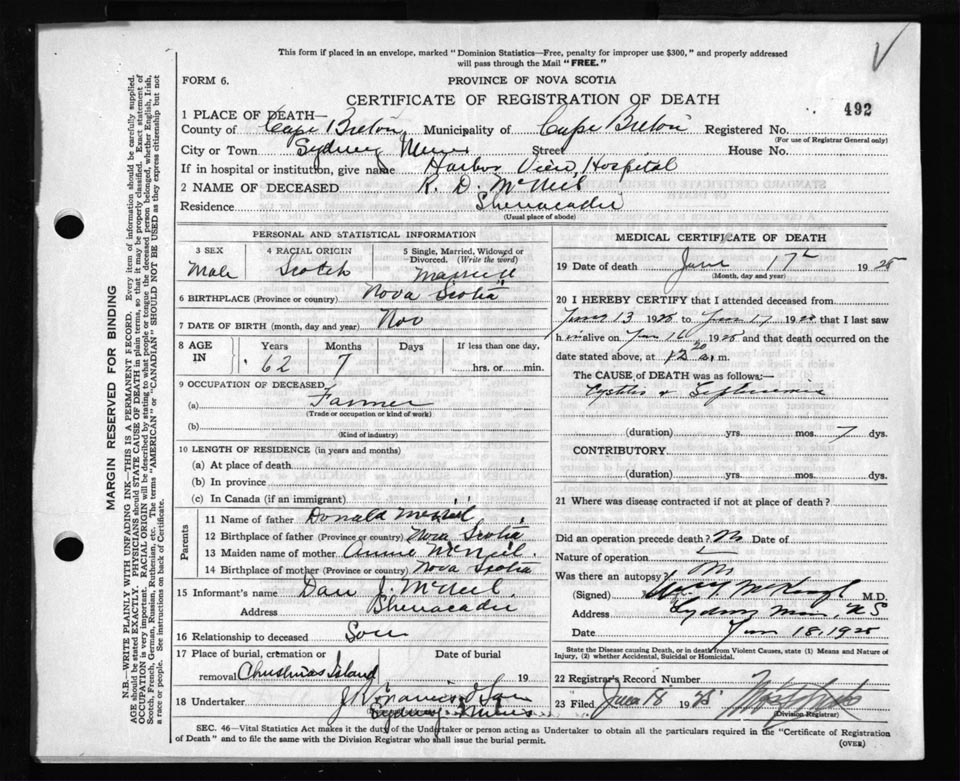 This form if placed in an envelope, marked "Dominion Statistics—Free, penalty for improper use $300," and properly addressed
will pass through the Mail "FREE."
FORM 6.
PROVINCE OF NOVA SCOTIA
CERTIFICATE OF REGISTRATION OF DEATH
492
1 PLACE OF DEATH—
County of Cape Breton Municipality of Cape Breton Registered No.
(For use of Registrar General only)
City or Town Sydney Mines Street House No.
If in hospital or institution, give name Harbor View Hospital
2 NAME OF DECEASED R. D. McNeil
Residence Shenacadie
(Usual place of abode)
PERSONAL AND STATISTICAL INFORMATION
3 SEX
Male
4 RACIAL ORIGIN
Scotch
5 Single, Married, Widowed or
Divorced. (Write the word)
Married
6 BIRTHPLACE (Province or country) Nova Scotia
7 DATE OF BIRTH (month, day and year) Nov
8 AGE IN
Years Months Days If less than one day,
62 7 hrs. or min.
9 OCCUPATION OF DECEASED
(a) Farmer
(Trade or occupation or kind of work)
(b)
(Kind of industry)
10 LENGTH OF RESIDENCE (in years and months)
(a) At place of death
(b) In province
(c) In Canada (if an immigrant)
Parents
11 Name of father Donald McNeil
12 Birthplace of father (Province or country) Nova Scotia
13 Maiden name of mother Annie McNeil.
14 Birthplace of mother (Province or country) Nova Scotia
15 Informant's name Dan J. McNeil.
Address Shenacadie
16 Relationship to deceased Son
17 Place of burial, cremation or Date of burial
removal Christmas Island 19
18 Undertaker J. Francis & Son
Sydney Mines
MEDICAL CERTIFICATE OF DEATH
19 Date of death June 17th 1925
(Month, day and year)
20 I HEREBY CERTIFY that I attended deceased from
June 13 1925 to June 17 1925 that I last saw
him alive on June 16 1925 and that death occurred on the
date stated above, at m.
The CAUSE of DEATH was as follows:—
Cystitis &
(duration) yrs. mos. 7 dys.
CONTRIBUTORY.
(duration) yrs. mos. dys.
21 Where was disease contracted if not at place of death?
Did an operation precede death? No Date of
Nature of operation
Was there an autopsy? No
(Signed) M.D.
Address Sydney Mines, N S
Date Jun 18, 1925
State the Disease causing Death, or in death from Violent Causes, state (1) Means and Nature of
Injury, (2) whether Accidental, Suicidal or Homicidal.
22 Registrar's Record Number
23 Filed June 18 1925
(Division Registrar)
SEC. 46—Vital Statistics Act makes it the duty of the Undertaker or person acting as Undertaker to obtain all the particulars required in the "Certificate of Registration
of Death" and to file the same with the Division Registrar who shall issue the burial permit.
(OVER)
MARGIN RESERVED FOR BINDING
N.B.—WRITE PLAINLY WITH UNFADING INK—THIS IS A PERMANENT RECORD. Every item of information should be carefully supplied.
AGE should be stated EXACTLY. PHYSICIANS should STATE CAUSE OF DEATH in plain terms, so that it may be properly classified. Exact statement of
OCCUPATION is very important. RACIAL ORIGIN will be described by stating to what people or tongue the deceased person belonged, whether English, Irish,
Scotch, French, German, Russian, Ruthenian, etc. The terms "AMERICAN" or "CANADIAN" SHOULD NOT BE USED as they express citizenship but not
a race or people. See instructions on back of Certificate.